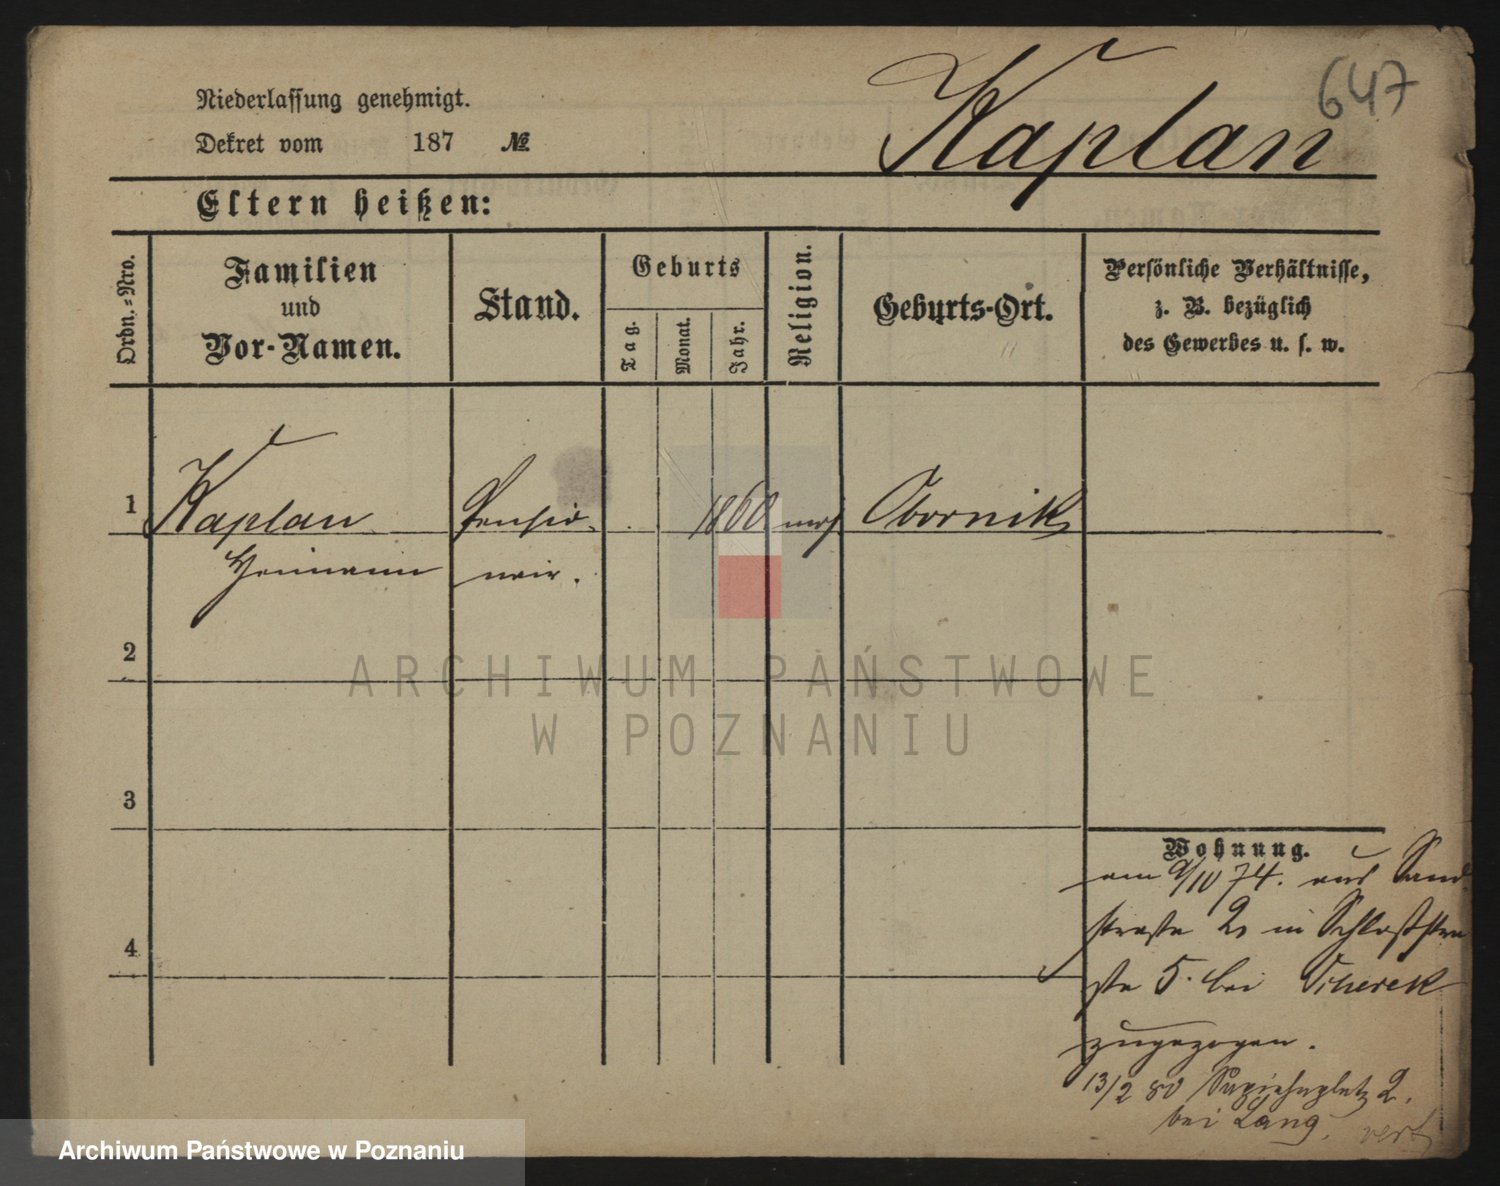 647
Niederlassung genehmigt.
Dekret vom 187 №
Kaplan
Eltern heißen:
Ordn.-Nro.
Familien
und
Vor-Namen.
Stand.
Geburts
Tag.
Monat.
Jahr.
Religion.
Geburts-Ort.
Persönliche Verhältnisse,
z. B. bezüglich
des Gewerbes u. s. w.
1 Kaplan Pensio- 1860 mos Obornik
Heimann nair.
2
3
4
Wohnung.
am 9/10 74. aus Sand
straße 2 in Schloßstra
ße 5. bei Scherek
zugezogen.
13/2 80 Sapiehaplatz 2.
bei Lang.
ARCHIWUM PAŃSTWOWE
W POZNANIU
Archiwum Państwowe w Poznaniu